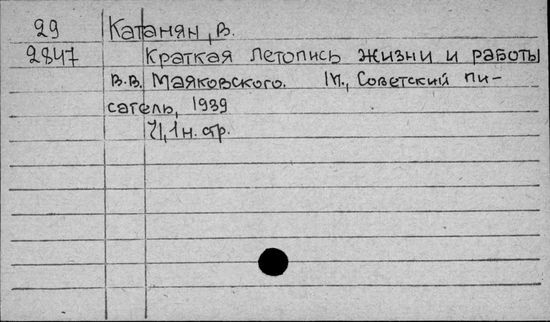 29 Катанян, В.
2847 Краткая летопись жизни и работы
В.В. Маяковского. М., Советский пи-
сатель, 1939
71, 1 н. стр.